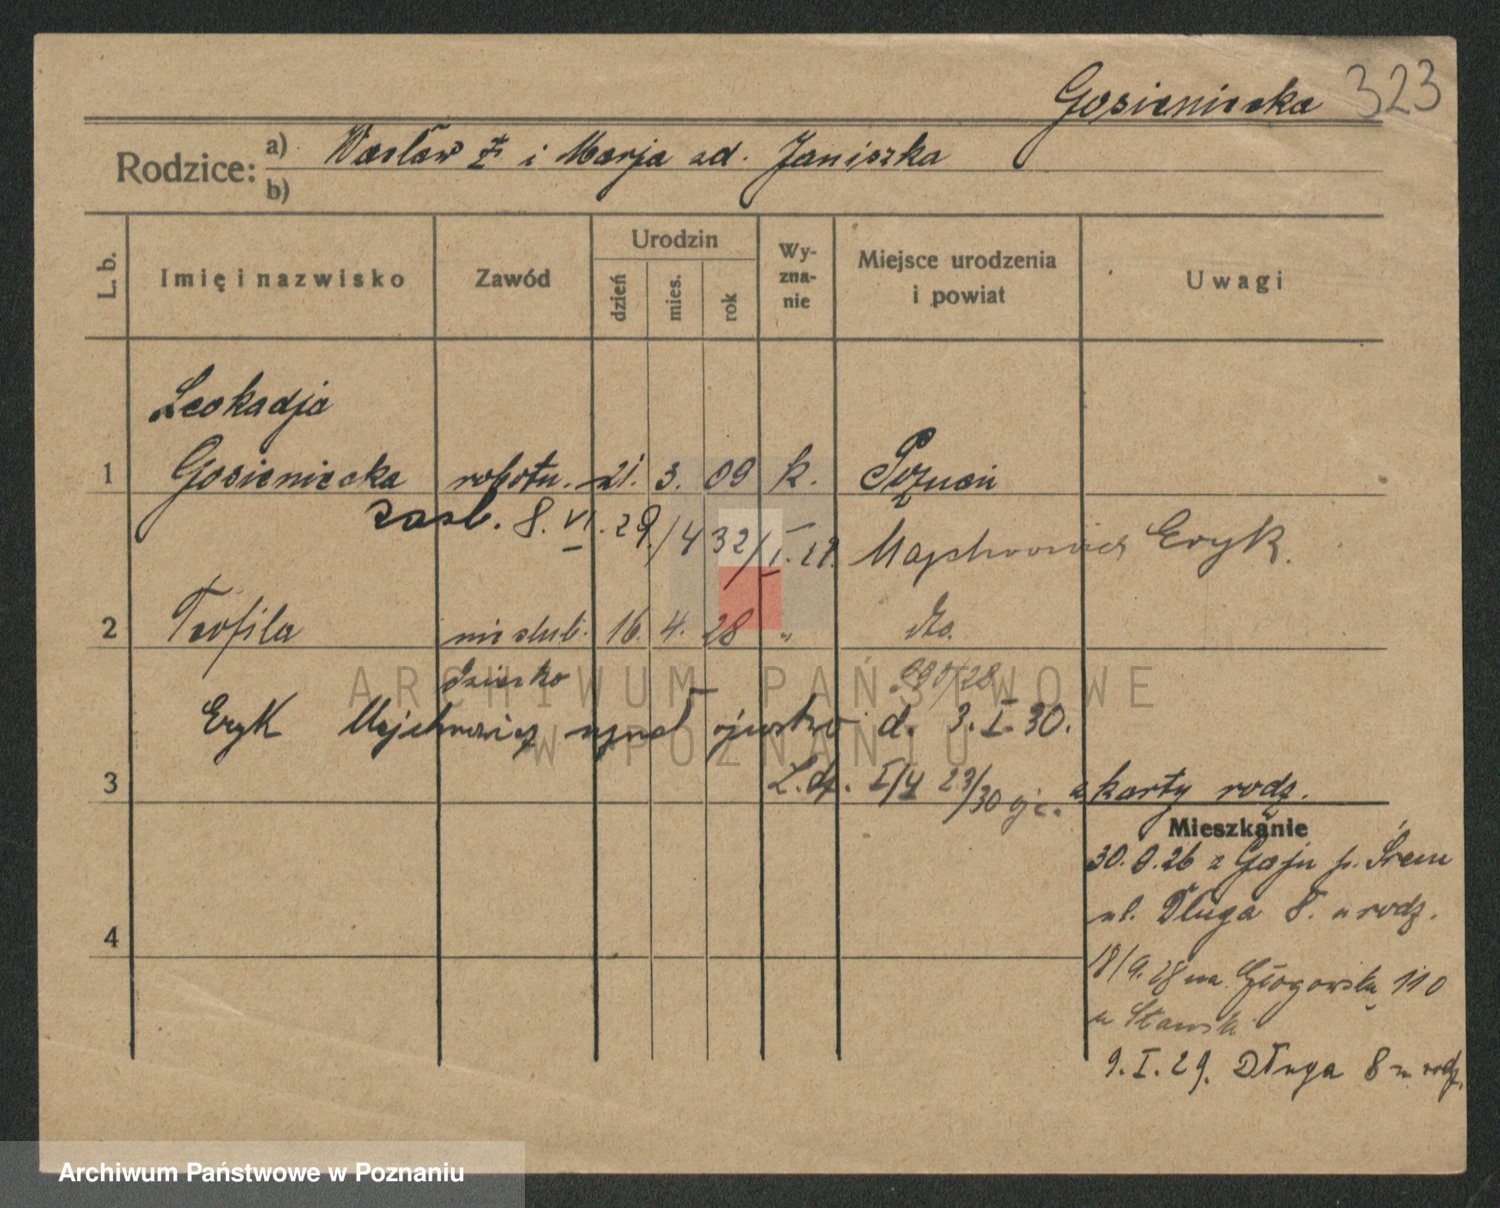 Gosieniecka 323
Rodzice:
a) Wacław i Marja zd. Janiszka
b)
L. b.
Imię i nazwisko
Zawód
Urodzin
dzień
mies.
rok
Wy-
zna-
nie
Miejsce urodzenia
i powiat
Uwagi
Leokadja
1 Gosieniecka robotn. 21. 3. 09 k. Poznań
zaśl. 8. VI. 29. / 4 32 / I. 29. Majchrowicz Eryk.
2 Teofila nieślub. 16. 4. 28 " dto.
dziecko
Eryk Majchrowicz uznał ojcostwo d. 3. I. 30.
3 L. dz. I/4 23/30 z karty rodz.
Mieszkanie
30. 9. 26 z Gaju p. Śrem
ul. Długa 8. u rodz.
4
18/9. 28 na Głogowską 110
u Stawsk.
9. I. 29. Długa 8 u rodz.
ARCHIWUM PAŃSTWOWE
W POZNANIU
Archiwum Państwowe w Poznaniu